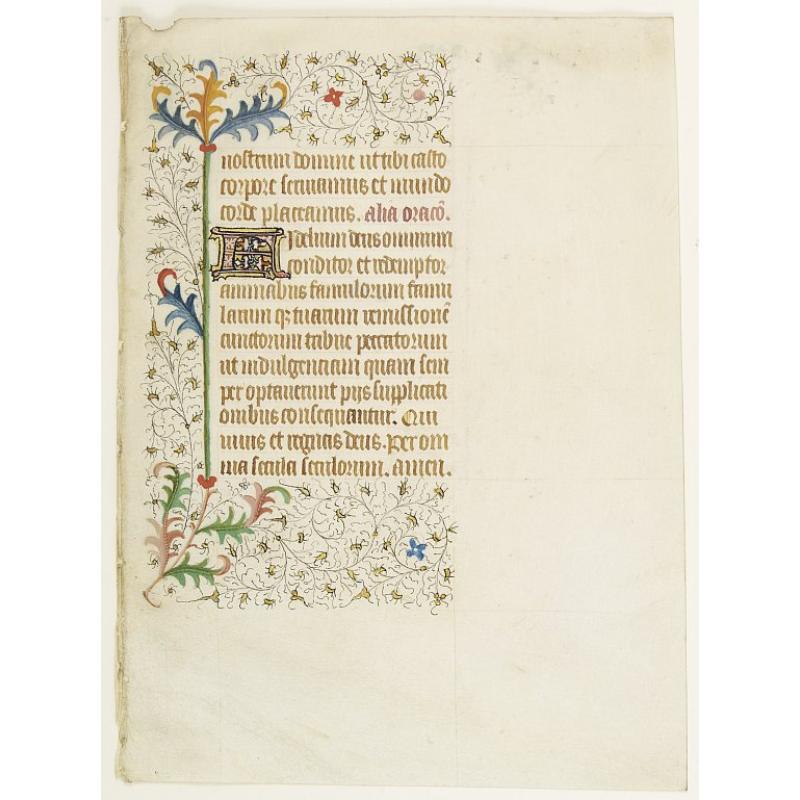 nostrum domine ut tibi casto
corpore seruiamus et mundo
corde placeamus. alia oracõ.
Fidelium deus omnium
conditor et redemptor
animabus famulorum famu
larum qz tuarum remissionẽ
cunctorum tribue peccatorum
ut indulgenciam quam sem
per optauerunt pijs supplicati
onibus consequantur. Qui
uiuis et regnas deus. Per om
nia secula seculorum. amen.